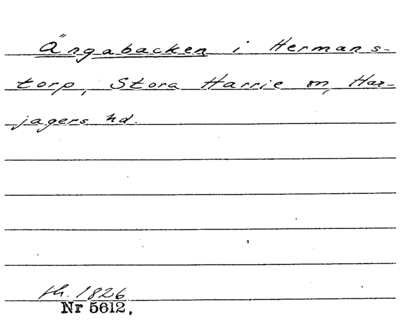 Ängabacken i Hermans-
torp, Stora Harrie sn, Har-
jagers hd.
th. 1826
Nr 5612.